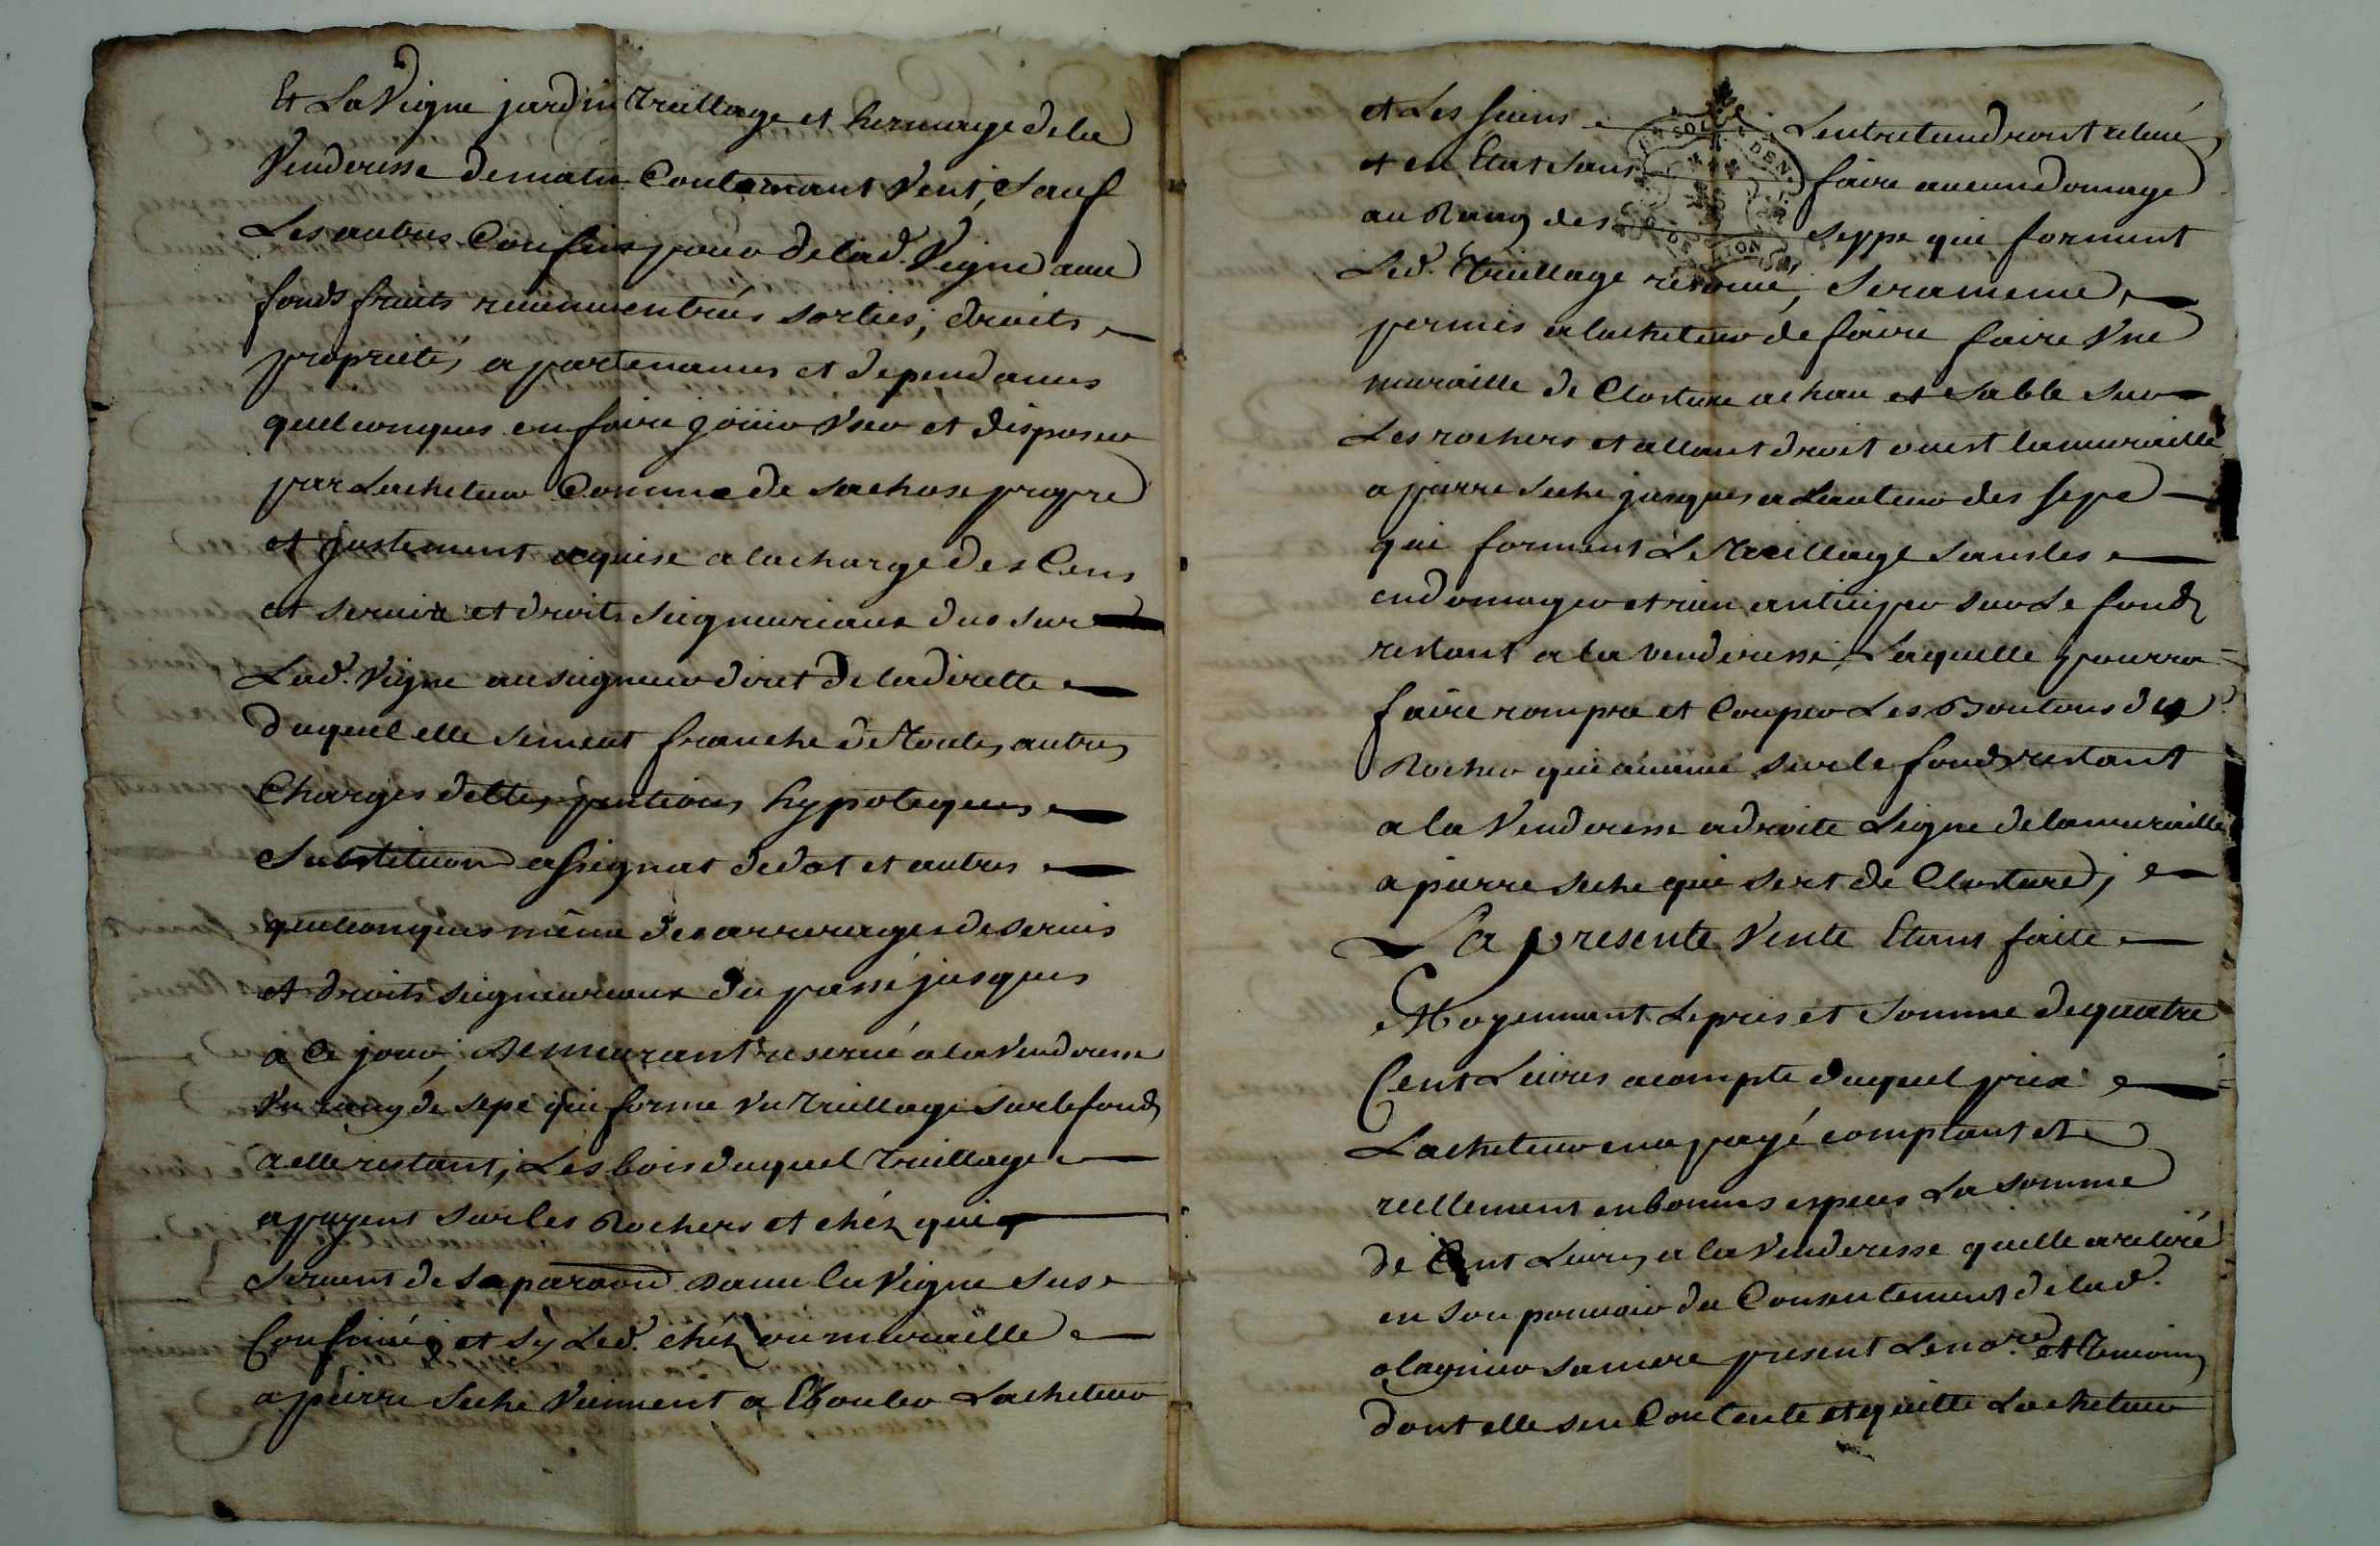 Et La Vigne jardin treillage et hermage de la
Venderesse de matin Couleurant Vent, Sauf
Les autres Confins pour de lad. Vigne avec
fonds fruits revenu entrées sorties, droits
proprietés apartenances et dependances
quelconques en faire joüir User et disposer
par Lacheteur Comme de sa chose propre
et justement aquise a la charge des Cens
et servix et droits seigneuriaux dus sur
Lad. Vigne au seigneur diret de la dirette
duquel elle se meut franche de Toutes autres
Charges dettes pentions hypoteques
Substitution assignat de dot et autres
quelconques même des arrerages de servis
et droits seigneuriaux du passé jusques
a Ce jour, Demeurant reservé a la Venderesse
Un rang de sepe qui forme Un treillage sur le fonds
a elle restant; Les bois duquel treillage
apuyent sur les Rochers et chéz qui
servent de separaon dans la Vigne sus
Confinée; et sy Led. chéz ou muraille
a pierre seche Viennent a Ebouler Lacheteur
et Les siens Lentretiendront relevé
et en Etat sans faire aucun domage
au Rang des seppe qui forment
Led. Treillage reservé, sera meme
permis a lacheteur de faire faire Une
muraille de Closture a chau et sable sur
Les rochers et allant droit vers la muraille
a pierre seche jusques a Lauteur des sepe
qui forment Le Treillage sans les
endomager et rien anticiper sur Le fonds
restant a la venderesse, Laquelle pourra
faire rompre et Couper Les Boutons des
Rocher qui avance sur le fonds restant
a la Venderesse a droite Ligne de la muraille
a pierre seche qui sert de Closture;
La presente Vente Etans faite
Moyennant Le pris et Somme de quatre
Cent Livres a compte duquel prix
Lacheteur en a payé comptant et
reellement en bonnes especes La somme
de Cent Livres a la Venderesse quelle a retiré
en son pouvoir du Consentement de lad.
olagnier sa mere present Le no.re et Temoins
dont elle sen Contente et quitte Lacheteur